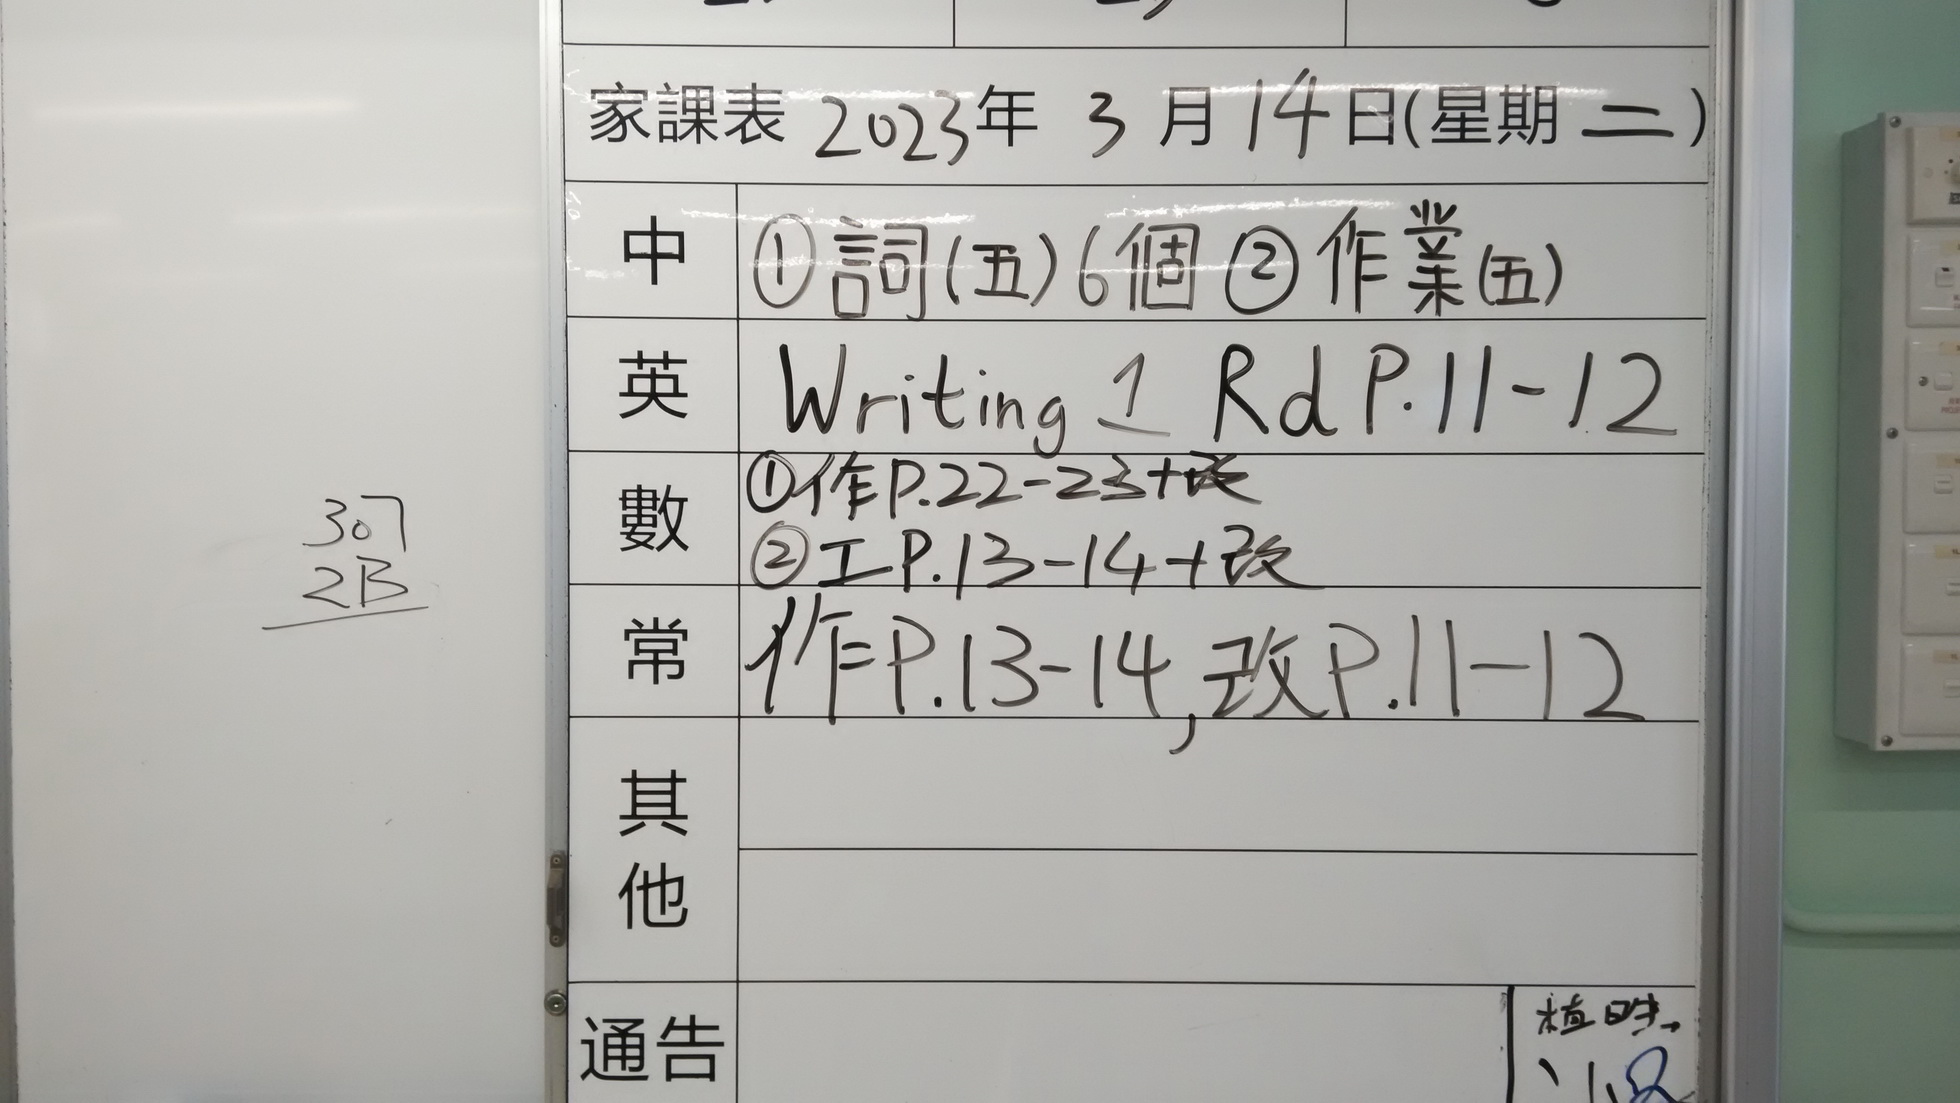 307
2B
家課表 2023年 3月14日(星期二)
中 ①詞(五)6個 ②作業(五)
英 Writing 1 Rd P.11-12
數 ①作P.22-23+改
②工P.13-14+改
常 作P.13-14,改P.11-12
其他
通告